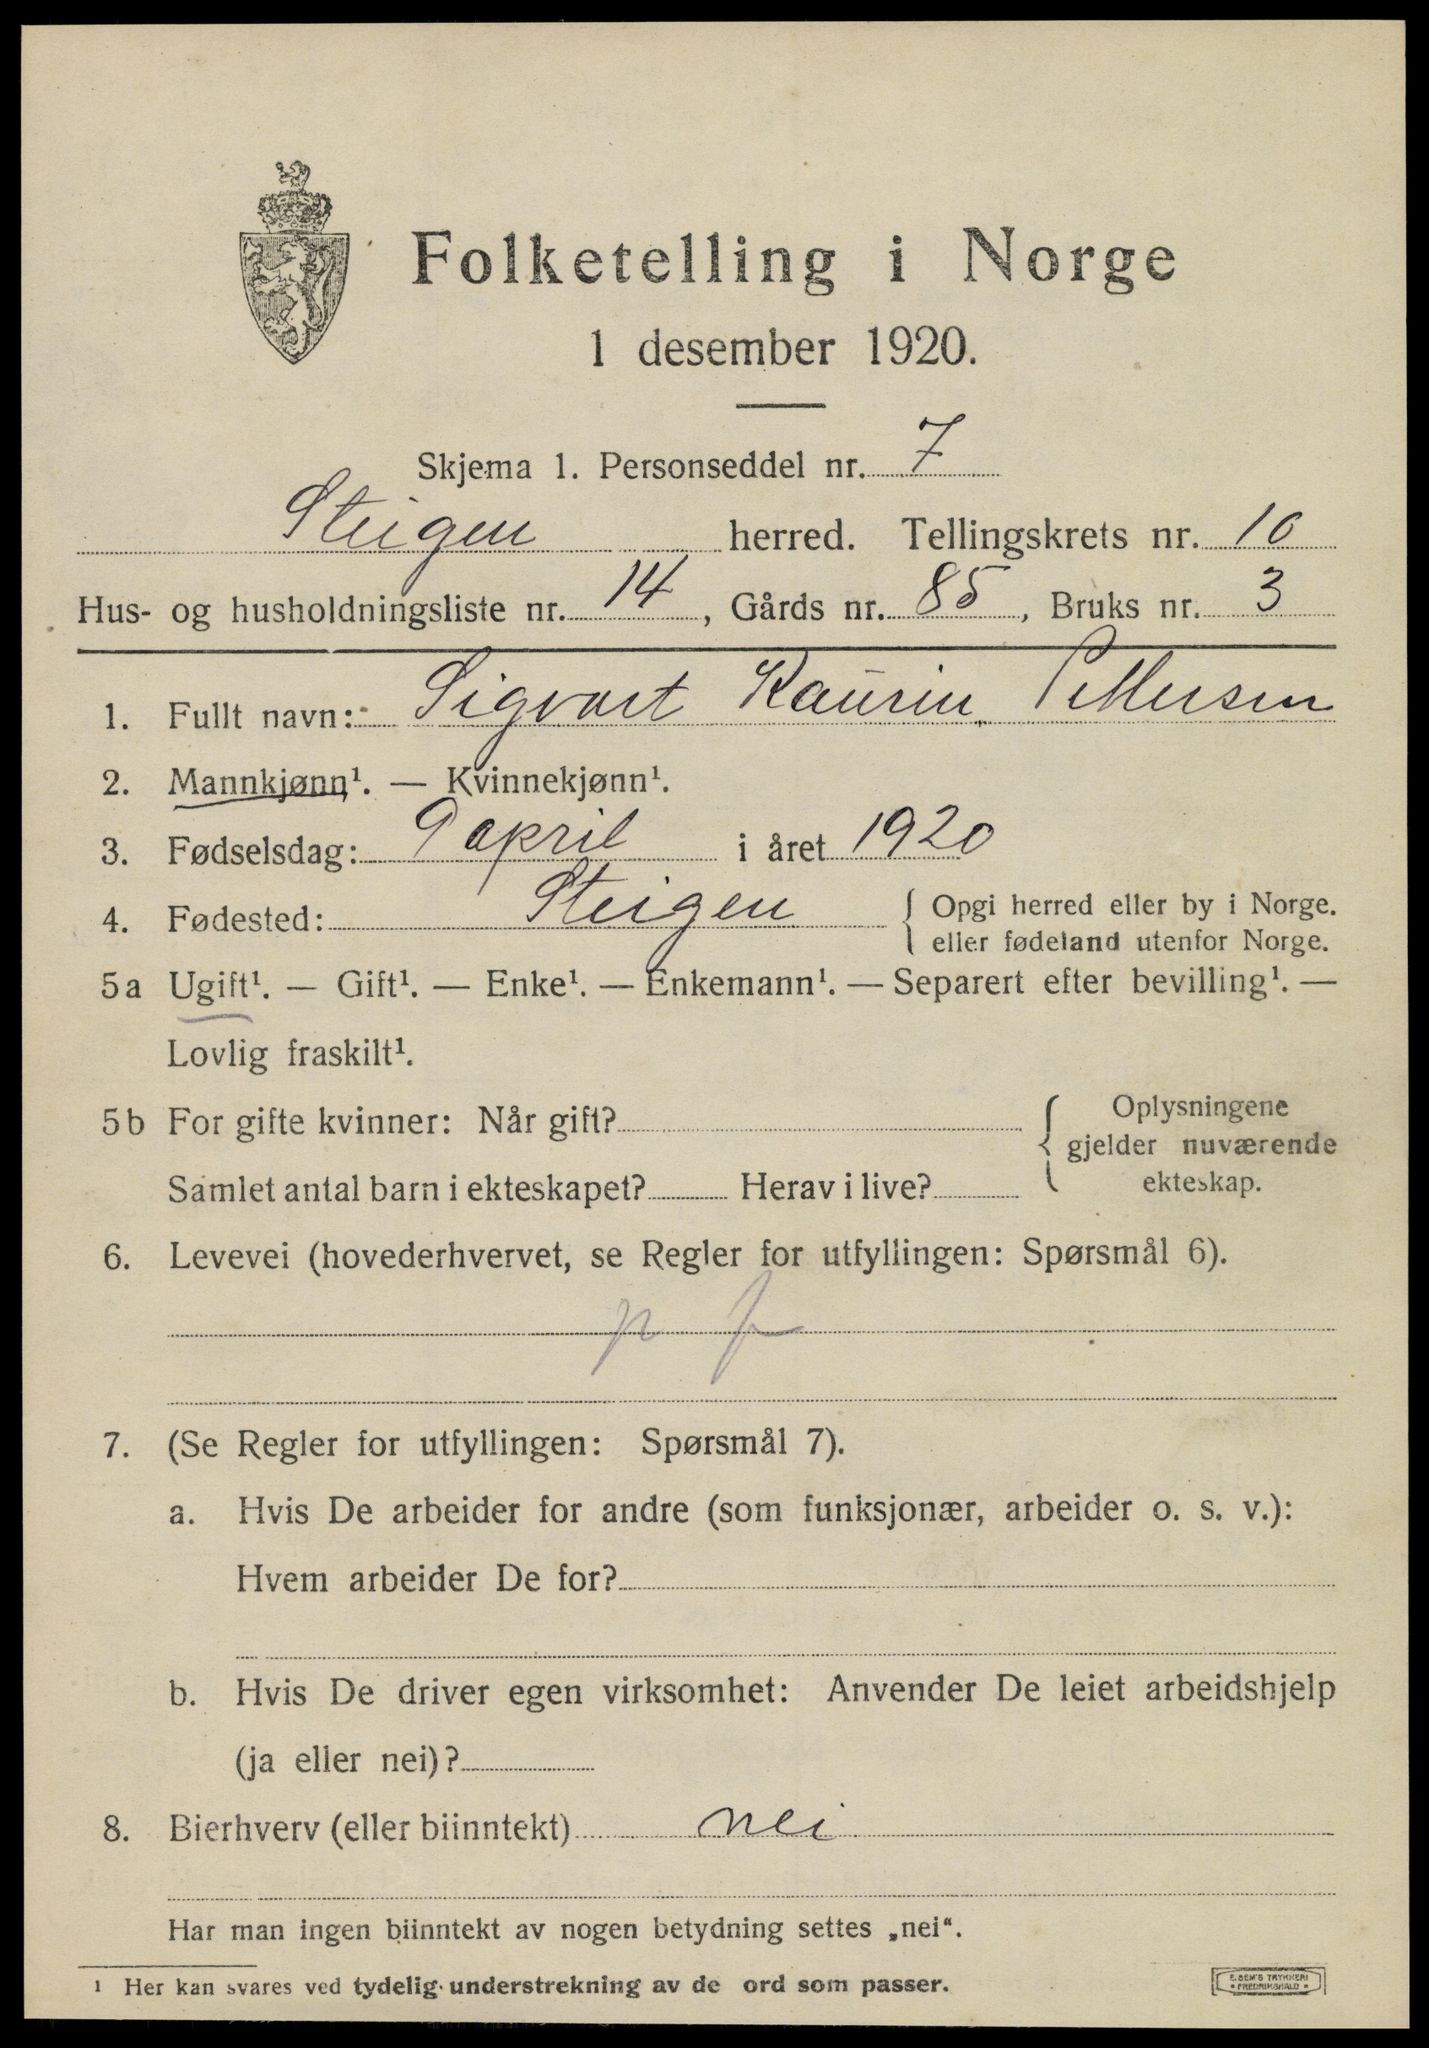 Folketelling i Norge
1 desember 1920.
Skjema 1. Personseddel nr. 7
Steigen herred. Tellingskrets nr. 10
Hus- og husholdningsliste nr. 14, Gårds nr. 85, Bruks nr. 3
1. Fullt navn: Sigvart Kaurin Pettersen
2. Mannkjønn¹. — Kvinnekjønn¹.
3. Fødselsdag: 9 april i året 1920
4. Fødested: Steigen { Opgi herred eller by i Norge.
eller fødeland utenfor Norge.
5a Ugift¹. — Gift¹. — Enke¹. — Enkemann¹. — Separert efter bevilling¹. —
Lovlig fraskilt¹.
5b For gifte kvinner: Når gift? { Oplysningene
gjelder nuværende
Samlet antal barn i ekteskapet? Herav i live? ekteskap.
6. Levevei (hovederhvervet, se Regler for utfyllingen: Spørsmål 6).
p f
7. (Se Regler for utfyllingen: Spørsmål 7).
a. Hvis De arbeider for andre (som funksjonær, arbeider o. s. v.):
Hvem arbeider De for?
b. Hvis De driver egen virksomhet: Anvender De leiet arbeidshjelp
(ja eller nei)?
8. Bierhverv (eller biinntekt) nei
Har man ingen biinntekt av nogen betydning settes „nei“.
1 Her kan svares ved tydelig understrekning av de ord som passer.
E. SEM'S TRYKKERI
* FREDRIKSHALD *